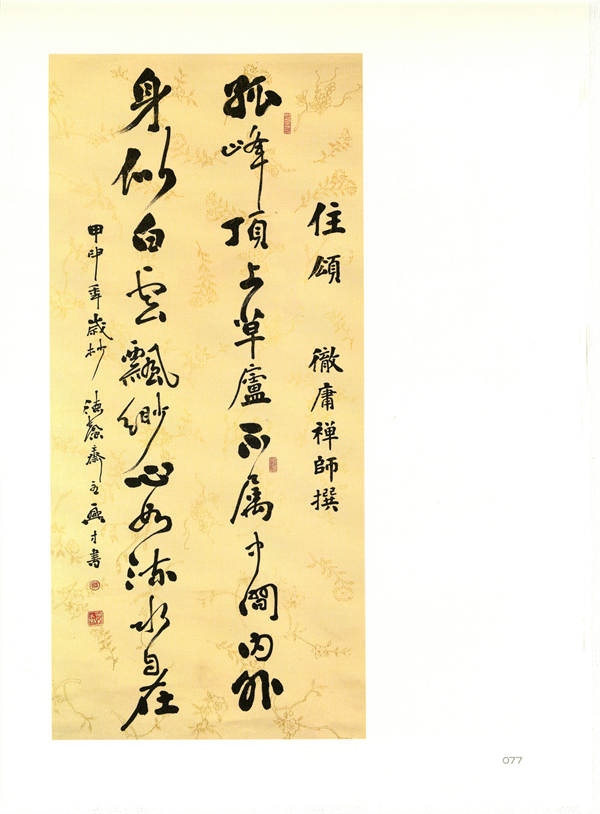 住頌 徹庸禅師撰
孤峰頂上草廬不属中間内外
身似白雲飄緲心如流水自在
甲申年歲杪 德馨齋主 才書
077